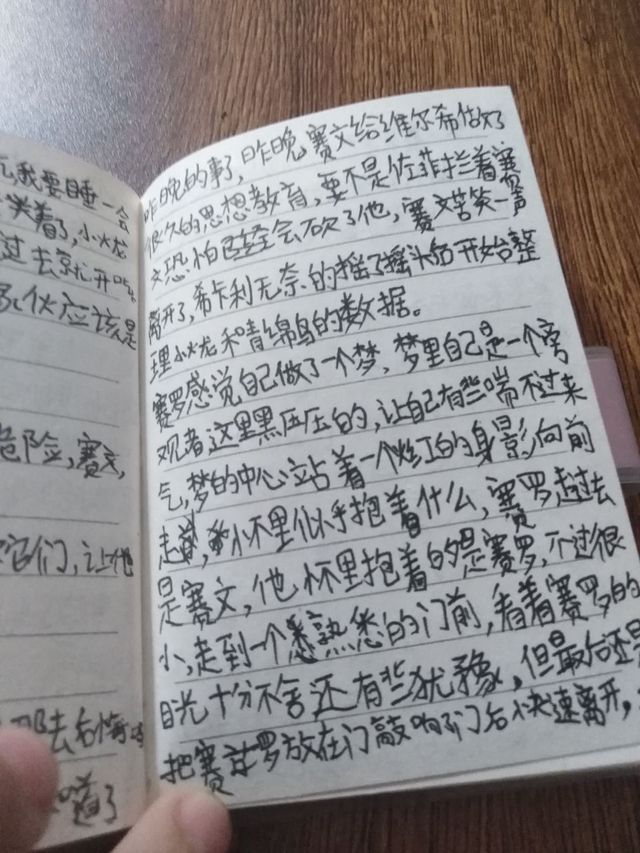 我要睡一会
笑着了,小火龙
过去就开
家伙应该是
危险,赛文,
它们,让他
那去后悔
道了
昨晚的事了,昨晚赛文给维尔希做了
很久的思想教育,要不是佐菲拦着赛
文恐怕已经会砍了他,赛文苦笑一声
离开了,希卡利无奈的摇了摇头后开始整
理小火龙和青绵鸟的数据。
赛罗感觉自己做了一个梦,梦里自己是一个旁
观者这里黑压压的,让自己有些喘不过来
气,梦的中心站着一个红的身影向前
走,怀里似乎抱着什么,赛罗过去
是赛文,他怀里抱着的是赛罗,不过很
小,走到一个熟悉的门前,看着赛罗的
目光十分不舍还有些犹豫,但最后还是
把赛罗放在门敲响了门后快速离开,